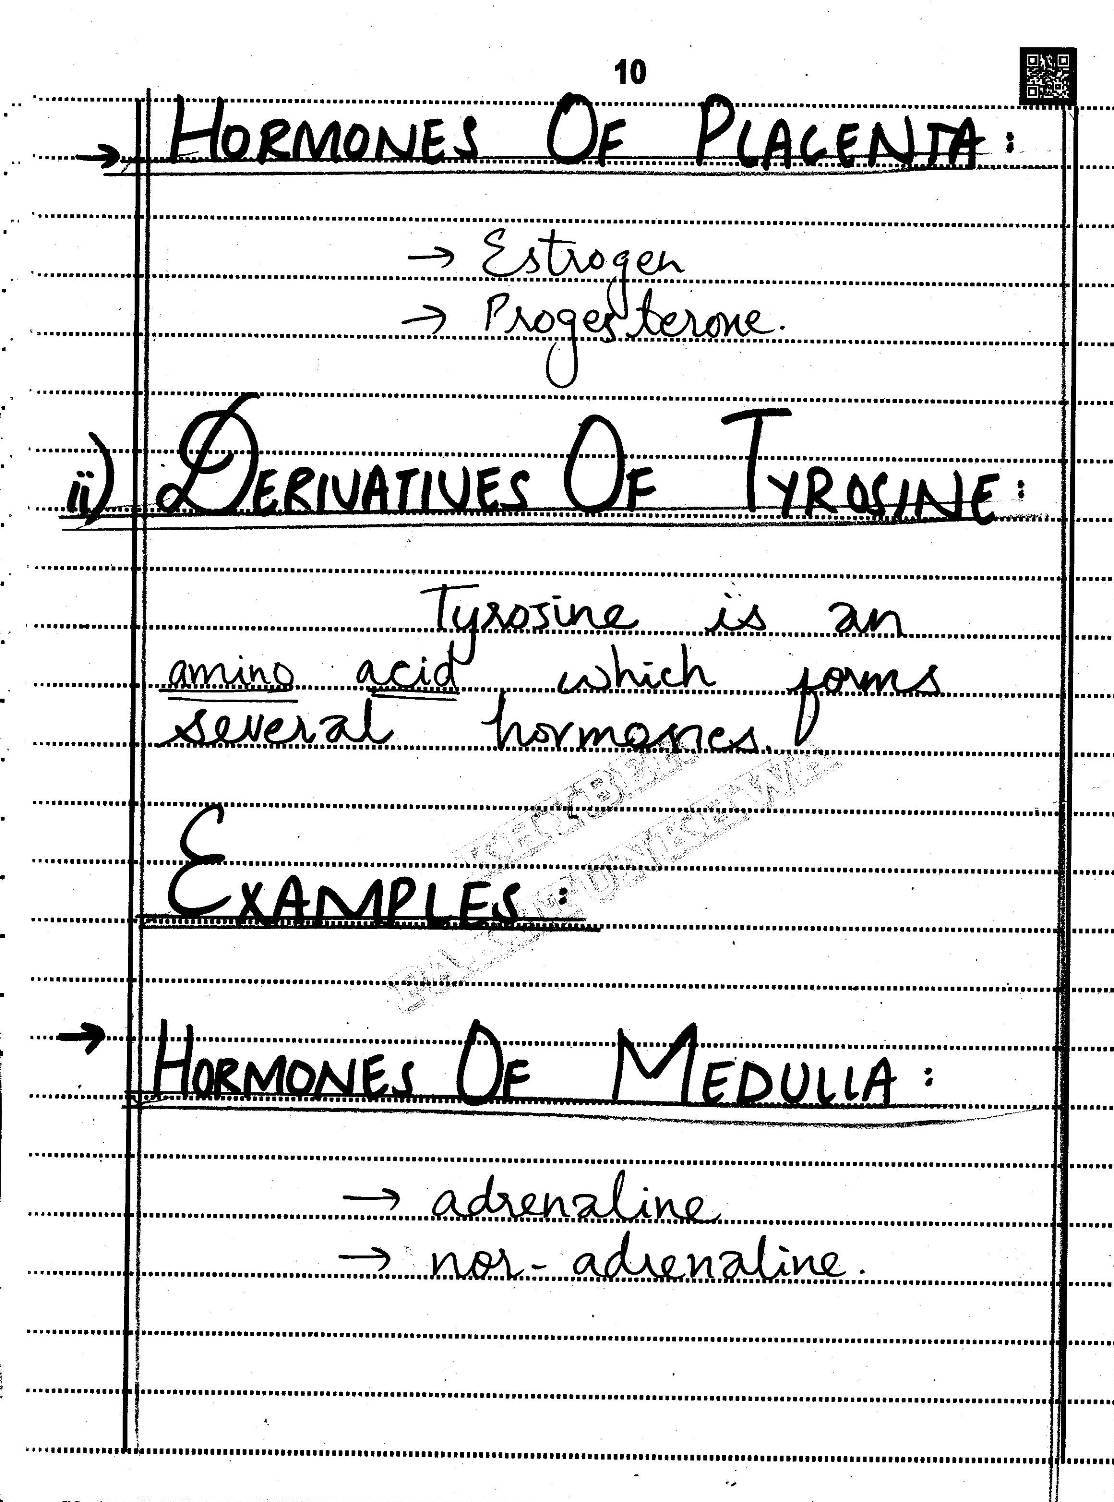 10
→ HORMONES OF PLACENTA:
→ Estrogen
→ Progesterone.
ii) DERIVATIVES OF TYROSINE:
Tyrosine is an
amino acid which forms
several hormones.
EXAMPLES:
→ HORMONES OF MEDULLA:
→ adrenaline
→ nor-adrenaline.